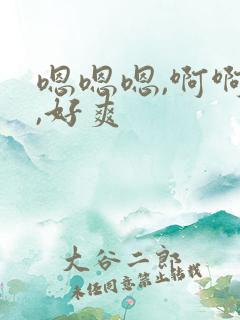 嗯嗯嗯,啊啊
,好爽
大谷二郎
未经同意禁止转载